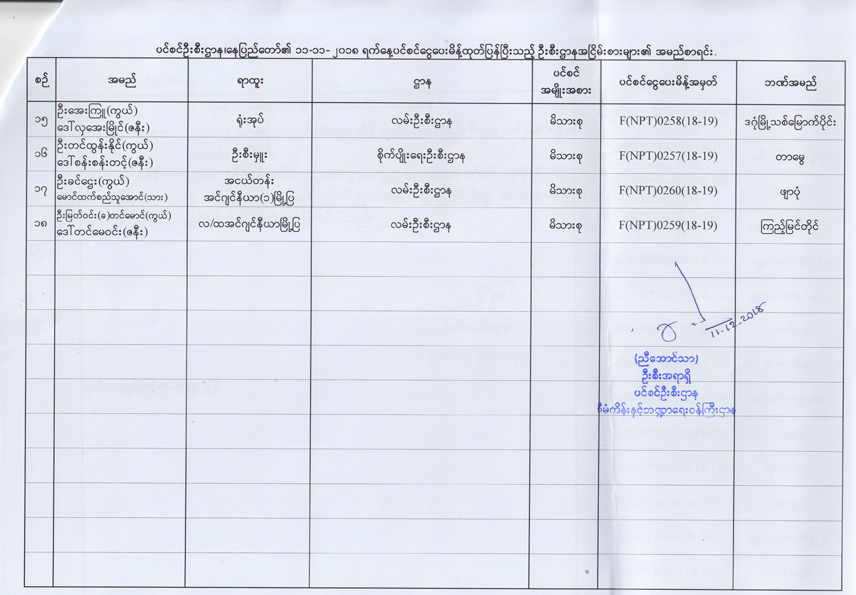 ပင်စင်ဦးစီးဌာန၊နေပြည်တော်၏ ၁၁-၁၁-၂၀၁၈ ရက်နေ့ပင်စင်ငွေပေးမိန့်ထုတ်ပြန်ပြီးသည့် ဦးစီးဌာနအငြိမ်းစားများ၏ အမည်စာရင်း.
စဉ် အမည် ရာထူး ဌာန ပင်စင် အမျိုးအစား ပင်စင်ငွေပေးမိန့်အမှတ် ဘဏ်အမည်
၁၅ ဦးအေးကြူ(ကွယ်) ရုံးအုပ် လမ်းဦးစီးဌာန မိသားစု F(NPT)0258(18-19) ဒဂုံမြို့သစ်မြောက်ပိုင်း
ဒေါ်လှအေးမြိုင်(ဇနီး)
၁၆ ဦးတင်ထွန်းနိုင်(ကွယ်) ဦးစီးမှူး စိုက်ပျိုးရေးဦးစီးဌာန မိသားစု F(NPT)0257(18-19) တာမွေ
ဒေါ်စန်းစန်းတင့်(ဇနီး)
၁၇ ဦးခင်ဌေး(ကွယ်) အငယ်တန်း လမ်းဦးစီးဌာန မိသားစု F(NPT)0260(18-19) ဖျာပုံ
မောင်ထက်စည်သူအောင်(သား) အင်ဂျင်နီယာ(၁)မြို့ပြ
၁၈ ဦးမြတ်ဝင်း(ခ)တင်မောင်(ကွယ်) လ/ထအင်ဂျင်နီယာမြို့ပြ လမ်းဦးစီးဌာန မိသားစု F(NPT)0259(18-19) ကြည့်မြင်တိုင်
ဒေါ်တင်မေဝင်း(ဇနီး)
11-12-2018
(ညီအောင်သာ)
ဦးစီးအရာရှိ
ပင်စင်ဦးစီးဌာန
စီမံကိန်းနှင့်ဘဏ္ဍာရေးဝန်ကြီးဌာန